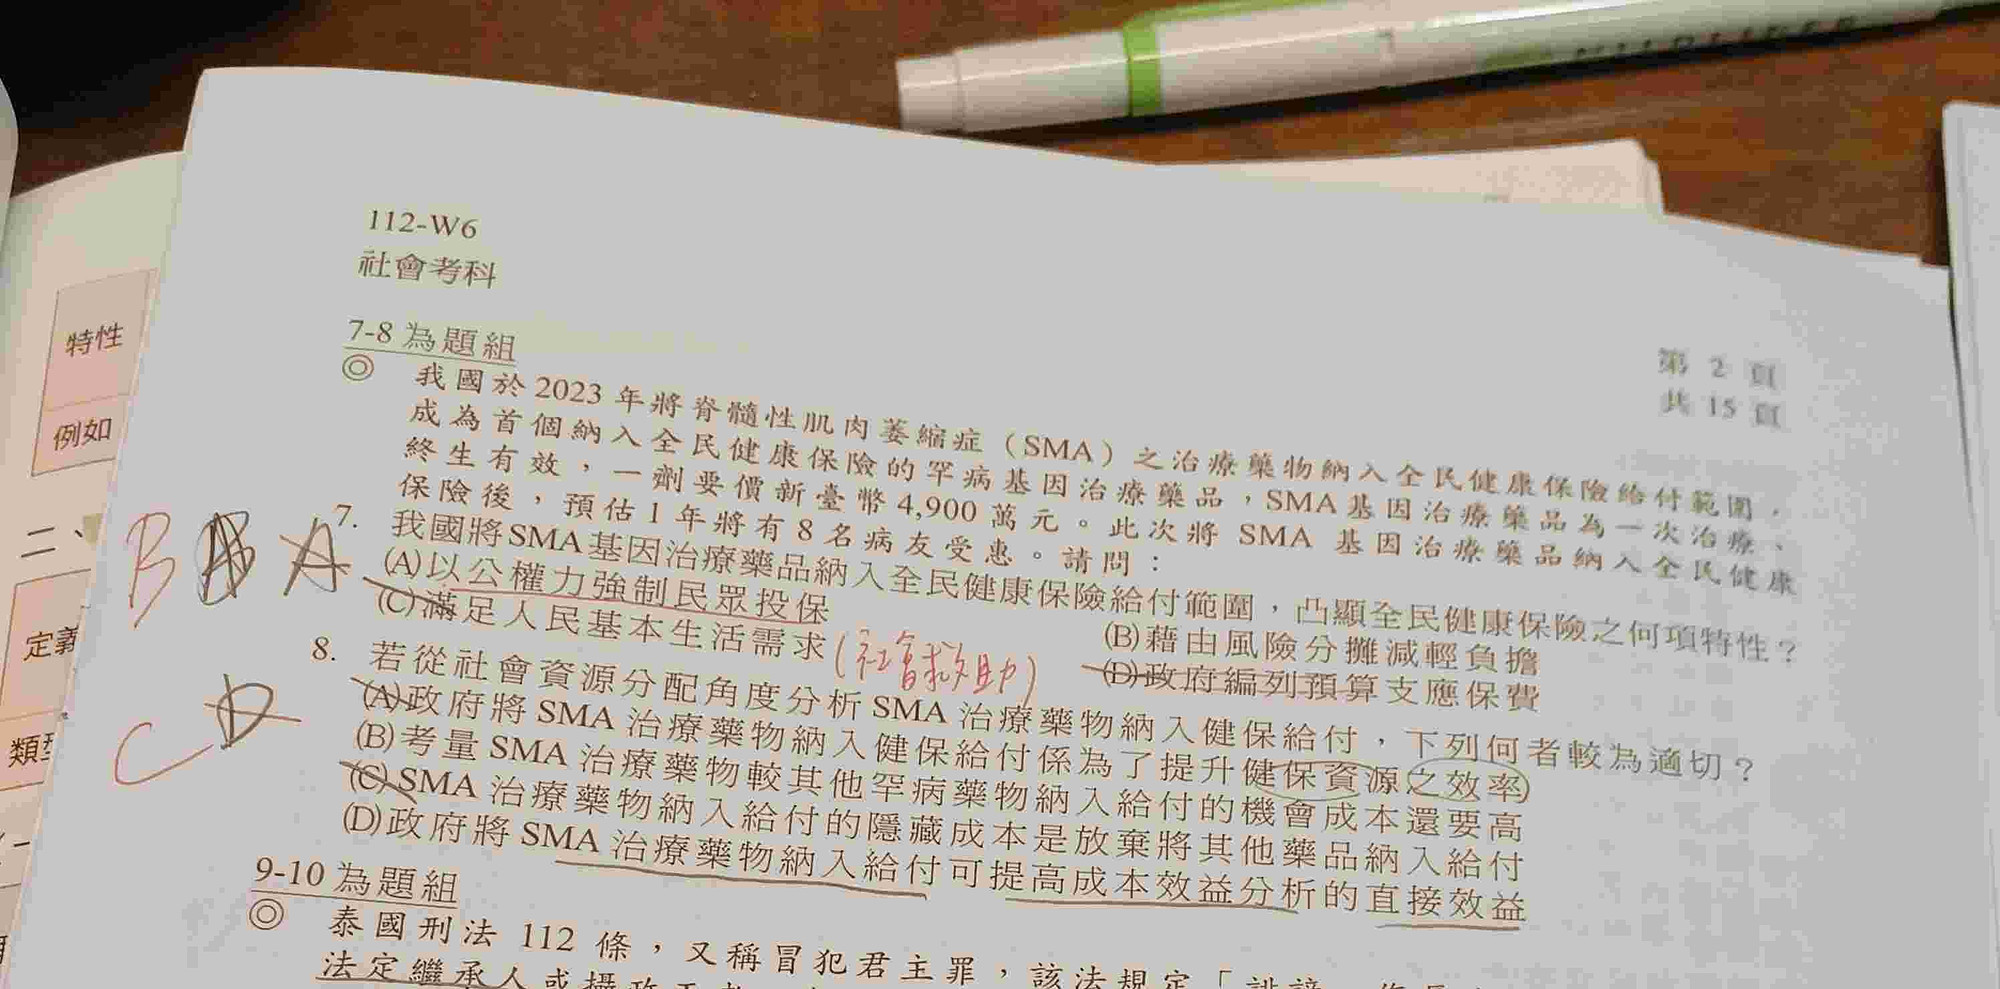 112-W6
社會考科
第 2 頁
共 15 頁
特性
例如
二、
定義
類型
7-8 為題組
◎ 我國於 2023 年將脊髓性肌肉萎縮症（SMA）之治療藥物納入全民健康保險給付範圍，
成為首個納入全民健康保險的罕病基因治療藥品，SMA基因治療藥品為一次治療、
終生有效，一劑要價新臺幣 4,900 萬元。此次將 SMA 基因治療藥品納入全民健康
保險後，預估 1 年將有 8 名病友受惠。請問：
B A 7. 我國將SMA基因治療藥品納入全民健康保險給付範圍，凸顯全民健康保險之何項特性？
(A)以公權力強制民眾投保 (B)藉由風險分攤減輕負擔
(C)滿足人民基本生活需求 (社會救助) (D)政府編列預算支應保費
C D 8. 若從社會資源分配角度分析 SMA 治療藥物納入健保給付，下列何者較為適切？
(A)政府將 SMA 治療藥物納入健保給付係為了提升健保資源之效率
(B)考量 SMA 治療藥物較其他罕病藥物納入給付的機會成本還要高
(C)SMA 治療藥物納入給付的隱藏成本是放棄將其他藥品納入給付
(D)政府將 SMA 治療藥物納入給付可提高成本效益分析的直接效益
9-10 為題組
◎ 泰國刑法 112 條，又稱冒犯君主罪，該法規定「誹謗
法定繼承人或攝政